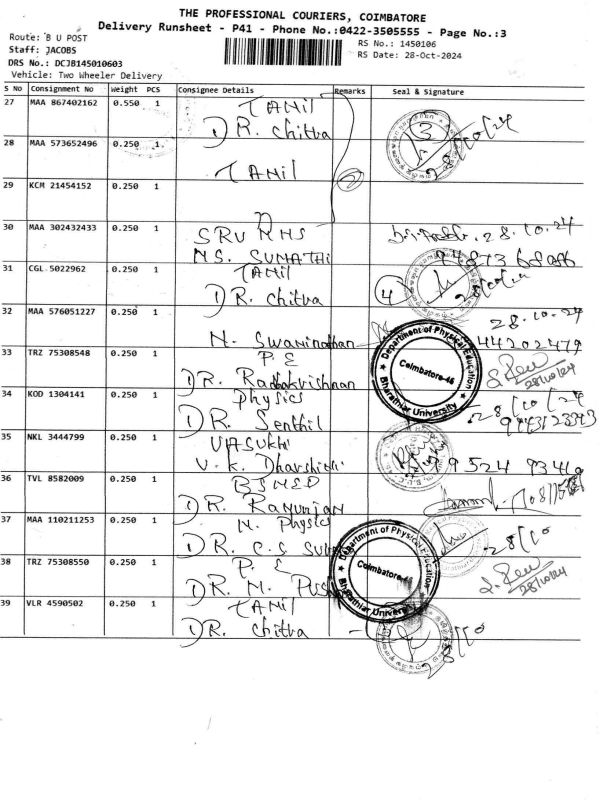 THE PROFESSIONAL COURIERS, COIMBATORE
Delivery Runsheet - P41 - Phone No.:0422-3505555 - Page No.:3
Route: B U POST
Staff: JACOBS
DRS No.: DCJB145010603
Vehicle: Two Wheeler Delivery
RS No.: 1450106
RS Date: 28-Oct-2024
S No Consignment No Weight PCS Consignee Details Remarks Seal & Signature
27 MAA 867402162 0.550 1 TAMil
DR. Chitra 3 28/10/24
28 MAA 573652496 0.250 1
TAMil
29 KCM 21454152 0.250 1
30 MAA 302432433 0.250 1 SRU MHS 28.10.24
MS. SUMATHI
31 CGL 5022962 0.250 1 TAMil
DR. Chitra 4
32 MAA 576051227 0.250 1 28.10.24
N. Swaminathan 44202479
33 TRZ 75308548 0.250 1 P. E
DR. Radhakrishnan 28/10/24
Department of Physical Education
Coimbatore-46
Bharathiar University
34 KOD 1304141 0.250 1 Physics 28/10/24
DR. Senthil
35 NKL 3444799 0.250 1 VASUKhi
V. K. Dharshini 79524 93419
36 TVL 8582009 0.250 1 BSMED
DR. Ramunjan
37 MAA 110211253 0.250 1 N. Physics
DR. C. S 28/10
38 TRZ 75308550 0.250 1 P. E
DR. M. 28/10/24
Department of Physical Education
Coimbatore-46
Bharathiar University
39 VLR 4590502 0.250 1 TAMil
DR. Chitra 28/10